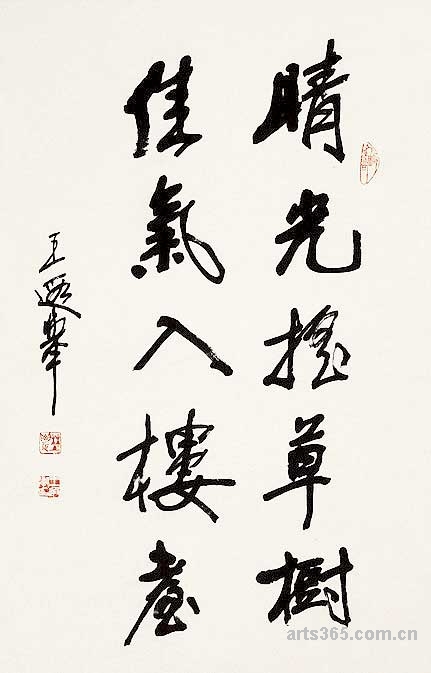 晴光搖草樹
佳氣入樓臺
王遐舉
arts365.com.cn